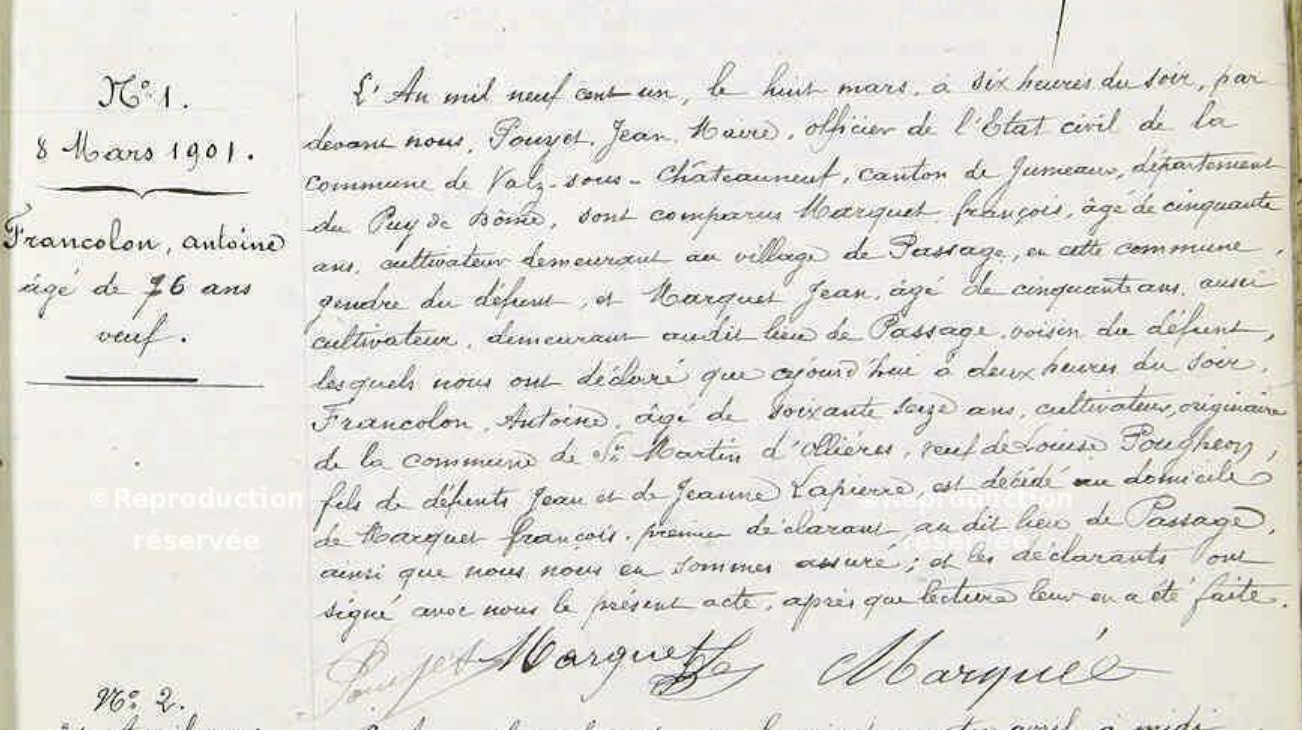 N° 1.
8 Mars 1901.
Francolon, antoine
âgé de 76 ans
veuf.
L'An mil neuf cent un, le huit mars, à six heures du soir, par
devant nous, Pouget, Jean, Maire, officier de l'Etat civil de la
commune de Valz-sous-Châteauneuf, canton de Jumeaux, département
du Puy de Dôme, sont comparus Marquet françois, âgé de cinquante
ans, cultivateur demeurant au village de Passage, en cette commune,
gendre du défunt, et Marquet Jean, âgé de cinquante ans, aussi
cultivateur, demeurant audit lieu de Passage, voisin du défunt,
lesquels nous ont déclaré que aujourd'hui à deux heures du soir,
Francolon, Antoine, âgé de soixante seize ans, cultivateur, originaire
de la commune de St Martin d'ollières, veuf de Louise Pougheon,
fils de défunts Jean et de Jeanne Lapierre est décédé au domicile
de Marquet françois, premier déclarant, au dit lieu de Passage,
ainsi que nous nous en sommes assuré; et les déclarants ont
signé avec nous le présent acte, après que lecture leur en a été faite.
Pouget Marquet Marqué
©Reproduction
réservée
©Reproduction
réservée
N° 2.
avril, à midi